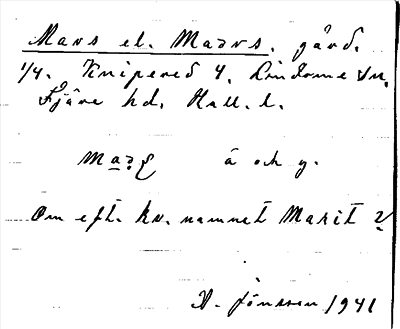 Mars el. Madrs. gård.
1/4. Knipered 4. Lindome sn.
Fjäre hd. Hall. l.
ä och y.
Om eft. kv. namnet Marit?
A. Jönsson 1941